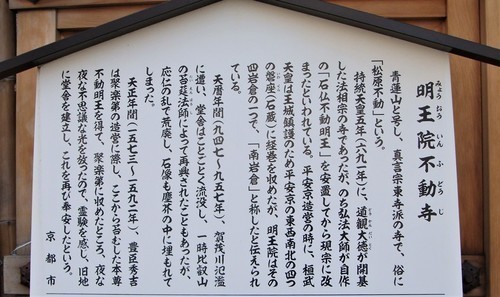 明王院不動寺
みょう おう いん ふ どう じ
青蓮山と号し、真言宗東寺派の寺で、俗に
「松原不動」という。
持統天皇五年(六九一年)に、道観大徳が開基
した法相宗の寺であったが、のち弘法大師が自作
の「石仏不動明王」を安置してから現宗に改
まったといわれている。平安京造営の時に、桓武
天皇は王城鎮護のため平安京の東西南北の四つ
の磐座(石蔵)に経巻を収めたが、明王院はその
四岩倉の一つで、「南岩倉」と称したと伝えられ
ている。
天暦年間(九四七~九五七年)、賀茂川氾濫
に遭い、堂舎はことごとく流没し、一時比叡山
の苔莚法師によって再興されたこともあったが、
応仁の乱で荒廃し、石像も塵芥の中に埋もれて
しまった。
天正年間(一五七三~一五九二年)、豊臣秀吉
は聚楽第の造営に際し、ここから苔むした本尊
不動明王を得て、聚楽第に収めたところ、夜な
夜な不思議な光を放ったので、霊験を感じ、旧地
に堂舎を建立し、これを再び奉安したという。
京都市